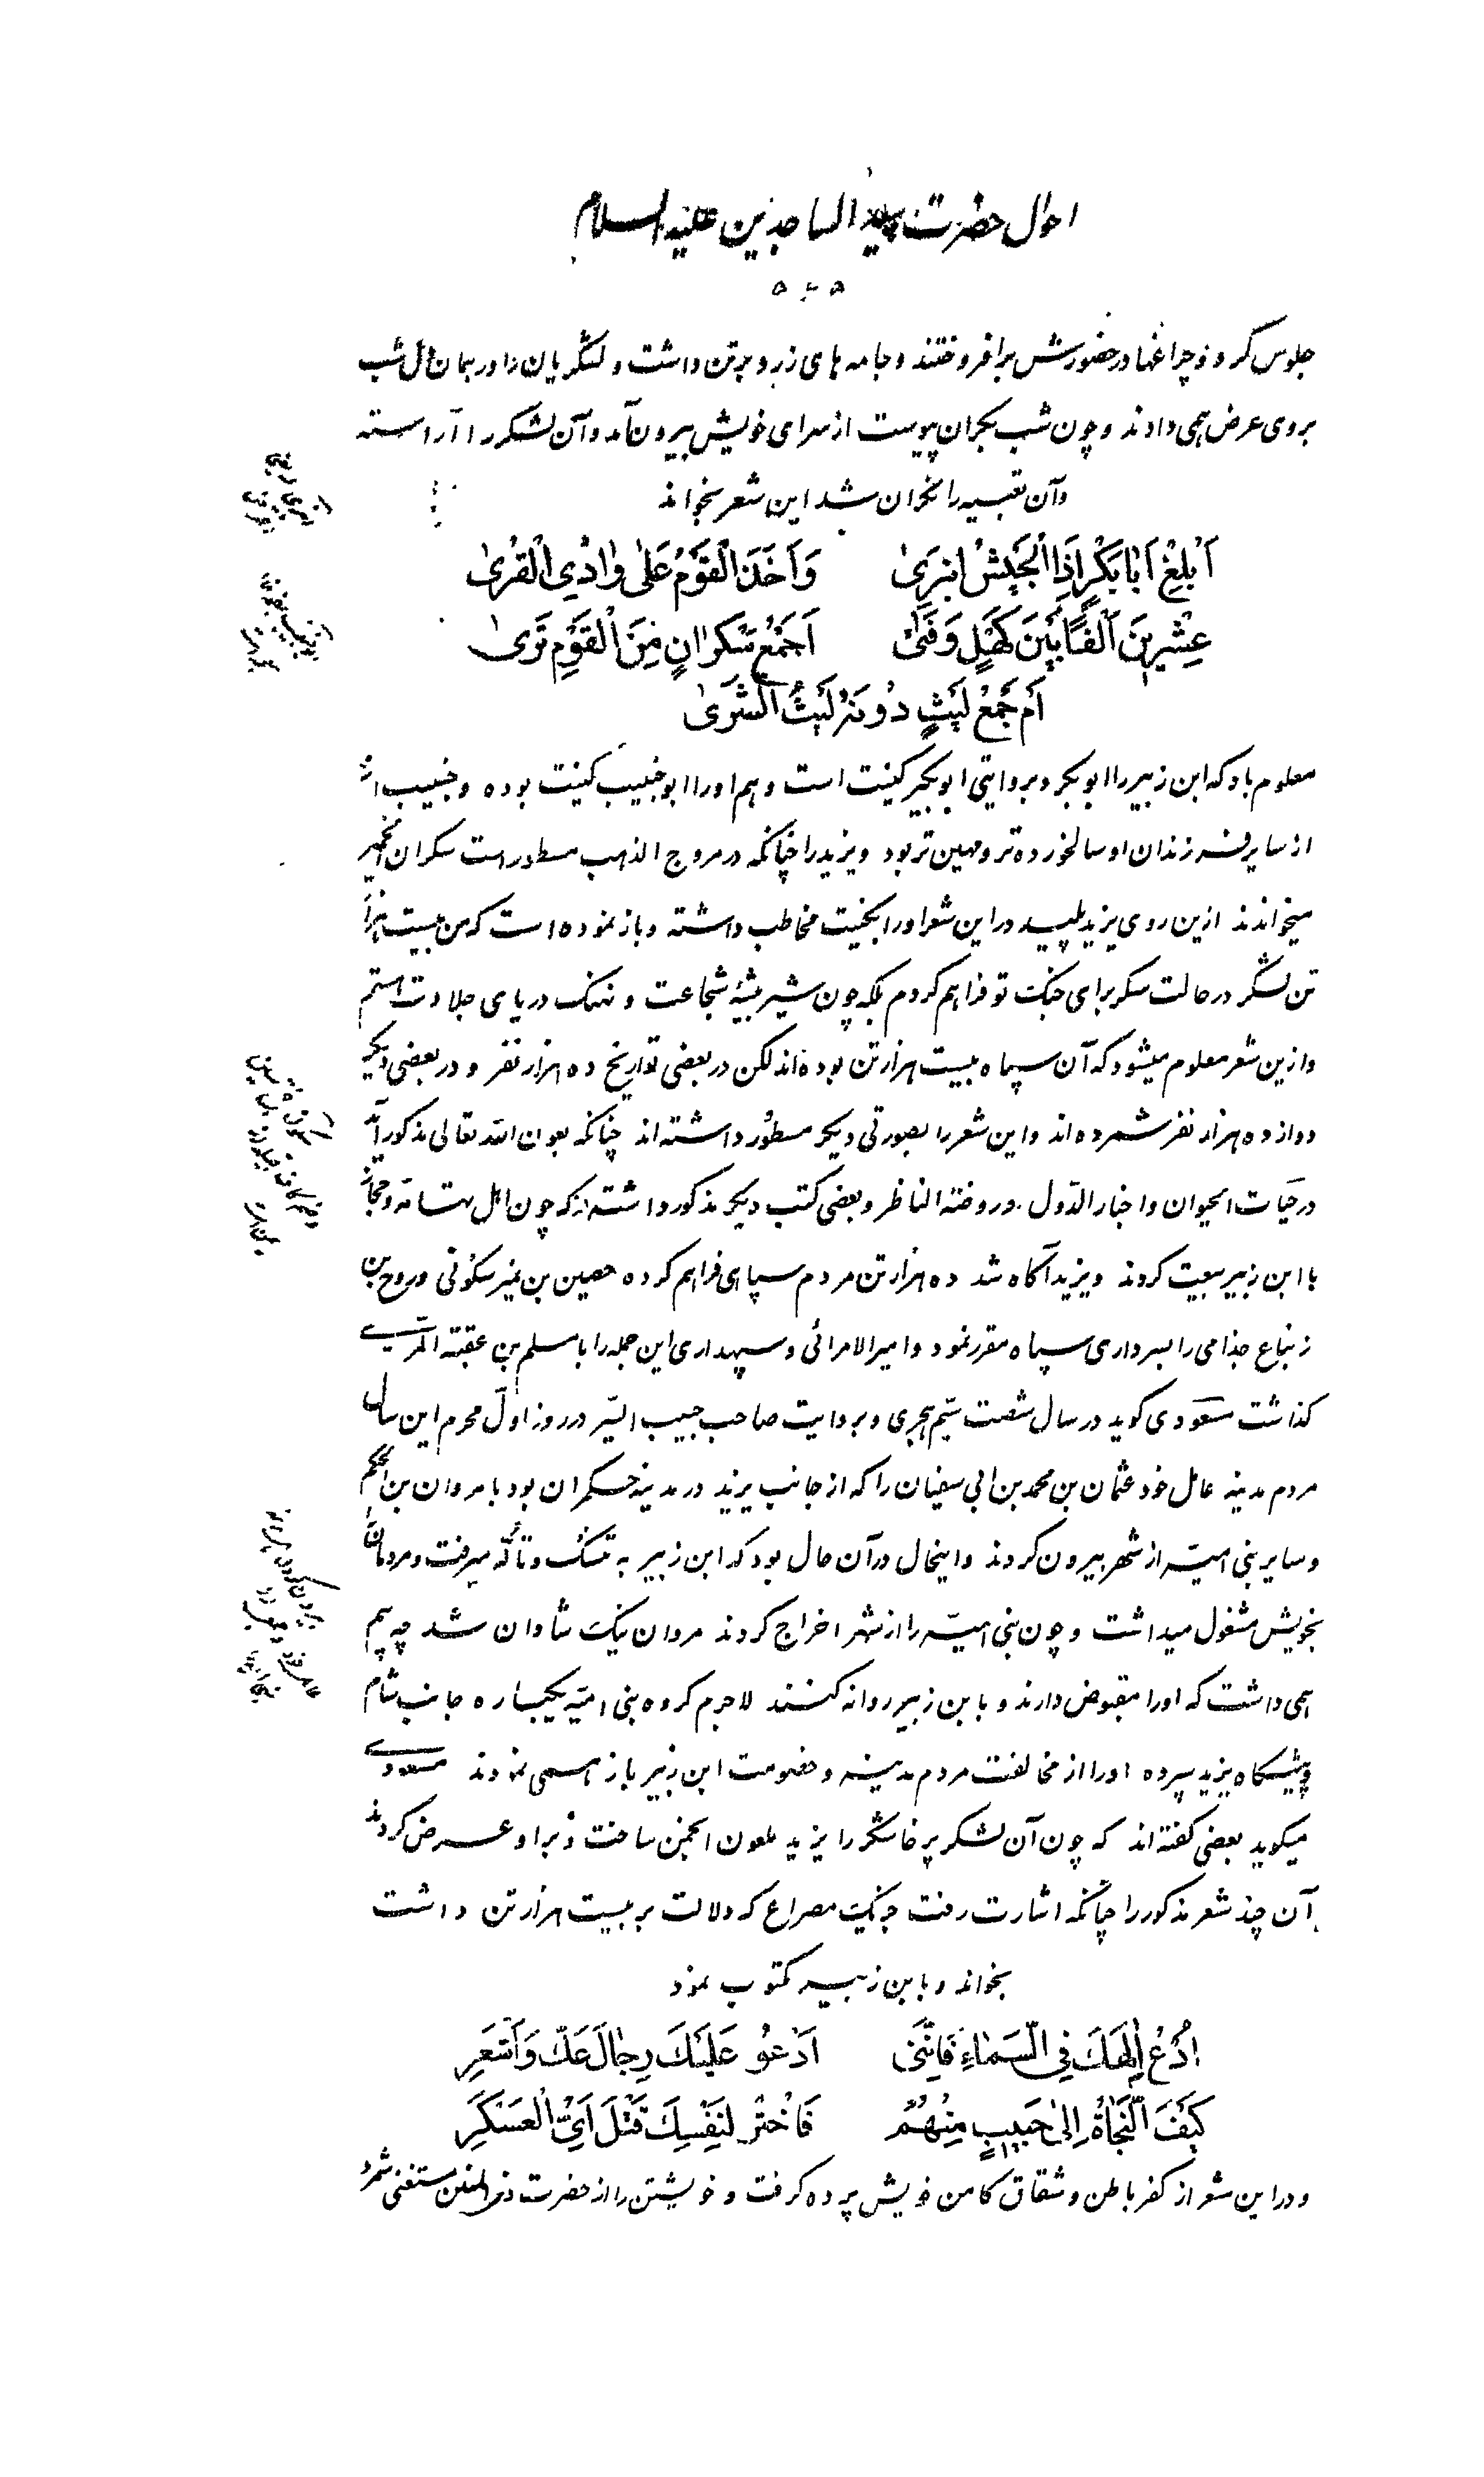 احوال حضرت سید الساجدین علیه السلام
جلوس کرد و چراغها در حضورش برافروختند و جامه های زرد بر تن داشت و لشگریان را در همان دل شب
بروی عرض همی دادند و چون شب بکران پیوست از سرای خویش بیرون آمد و آن لشگر را آراسته
و آن تعبیه را نگران شد این شعر بخواند
اَبْلِغْ اَبابَکْرٍ اِذَا الْجَیْشُ انبَرَیٰ وَاَخَذَ الْقَوْمُ عَلیٰ وادِی الْقُریٰ
عِشْرینَ اَلْفًا بَیْنَ کَهْلٍ وَفَتیٰ اَجَمْعَ سَکْرانٍ مِنَ الْقَوْمِ تَریٰ
اَم جَمْعَ لَیْثٍ دُونَهُ لَیْثُ الشَّریٰ
معلوم باد که ابن زبیر را ابوبکر و بروایتی ابوبکیر کنیت است و هم او را ابوخبیب کنیت بوده و خبیب
از سایر فرزندان او سالخورده تر و مهین تر بود و یزید را چنانکه در مروج الذهب مسطور است سکران الخمیر
میخواندند ازین روی یزید پلید در این شعر او را بکنیت مخاطب داشته و باز نموده است که من بیست هزار
تن لشگر در حالت سکر برای جنگ تو فراهم کردم بلکه چون شیر بیشهٔ شجاعت و نهنگ دریای جلادت استم
و ازین شعر معلوم میشود که آن سپاه بیست هزار تن بوده اند لکن در بعضی تواریخ ده هزار نفر و در بعضی دیگر
دوازده هزار نفر شمرده اند و این شعر را بصورتی دیگر مسطور داشته اند چنانکه بعون الله تعالی مذکور آید
در حیات الحیوان و اخبار الدّول و روضة الناظر و بعضی کتب دیگر مذکور داشته اند که چون اهل تهامة و حجاز
با ابن زبیر بیعت کردند و یزید آگاه شد ده هزار تن مردم سپاهی فراهم کرده حصین بن نمیر سکونی و روح بن
زنباع جذامی را بسرداری سپاه مقرر نمود و امیر الامرائی و سپهداری این جمله را با مسلم بن عقبة المری
گذاشت مسعودی گوید در سال شصت سیّم هجری و بروایت صاحب حبیب السّیر در روز اوّل محرم این سال
مردم مدینه عامل خود عثمان بن محمد بن ابی سفیان را که از جانب یزید در مدینه حکمران بود با مروان بن الحکم
و سایر بنی امیّه از شهر بیرون کردند و اینحال در آن حال بود که ابن زبیر به تنسّک و تألّه میرفت و مردمان را
بخویش مشغول میداشت و چون بنی امیّه را از شهر اخراج کردند مروان نیک شادان شد چه بیم
همی داشت که او را مقبوض دارند و بابن زبیر روانه کنند لاجرم گروه بنی امیّه یکباره جانب شام
و پیشگاه یزید سپرده او را از مخالفت مردم مدینه و خصومت ابن زبیر باز همی نمودند مسعودی
میگوید بعضی گفته اند که چون آن لشکر پرخاشگر را یزید ملعون انجمن ساخت و بر او عرض کردند
آن چند شعر مذکور را چنانکه اشارت رفت جز یک مصراع که دلالت بر بیست هزار تن داشت
بخواند و بابن زبیر مکتوب نمود
اُدْعُ اِلٰهَکَ فِی السَّمٰاءِ فَاِنَّنی اَدْعُو عَلَیْکَ رِجالَ عَکٍّ وَاَشْعَرِ
کَیْفَ النَّجاةُ اِلیٰ خُبَیْبٍ مِنْهُمُ فَاخْتَرْ لِنَفْسِکَ قَتْلَ اَیِّ الْعَسْکَرِ
و در این شعر از کفر باطن و شقاق کامن خویش پرده گرفت و خویشتن را از حضرت ذوالمنن مستغنی شمرد